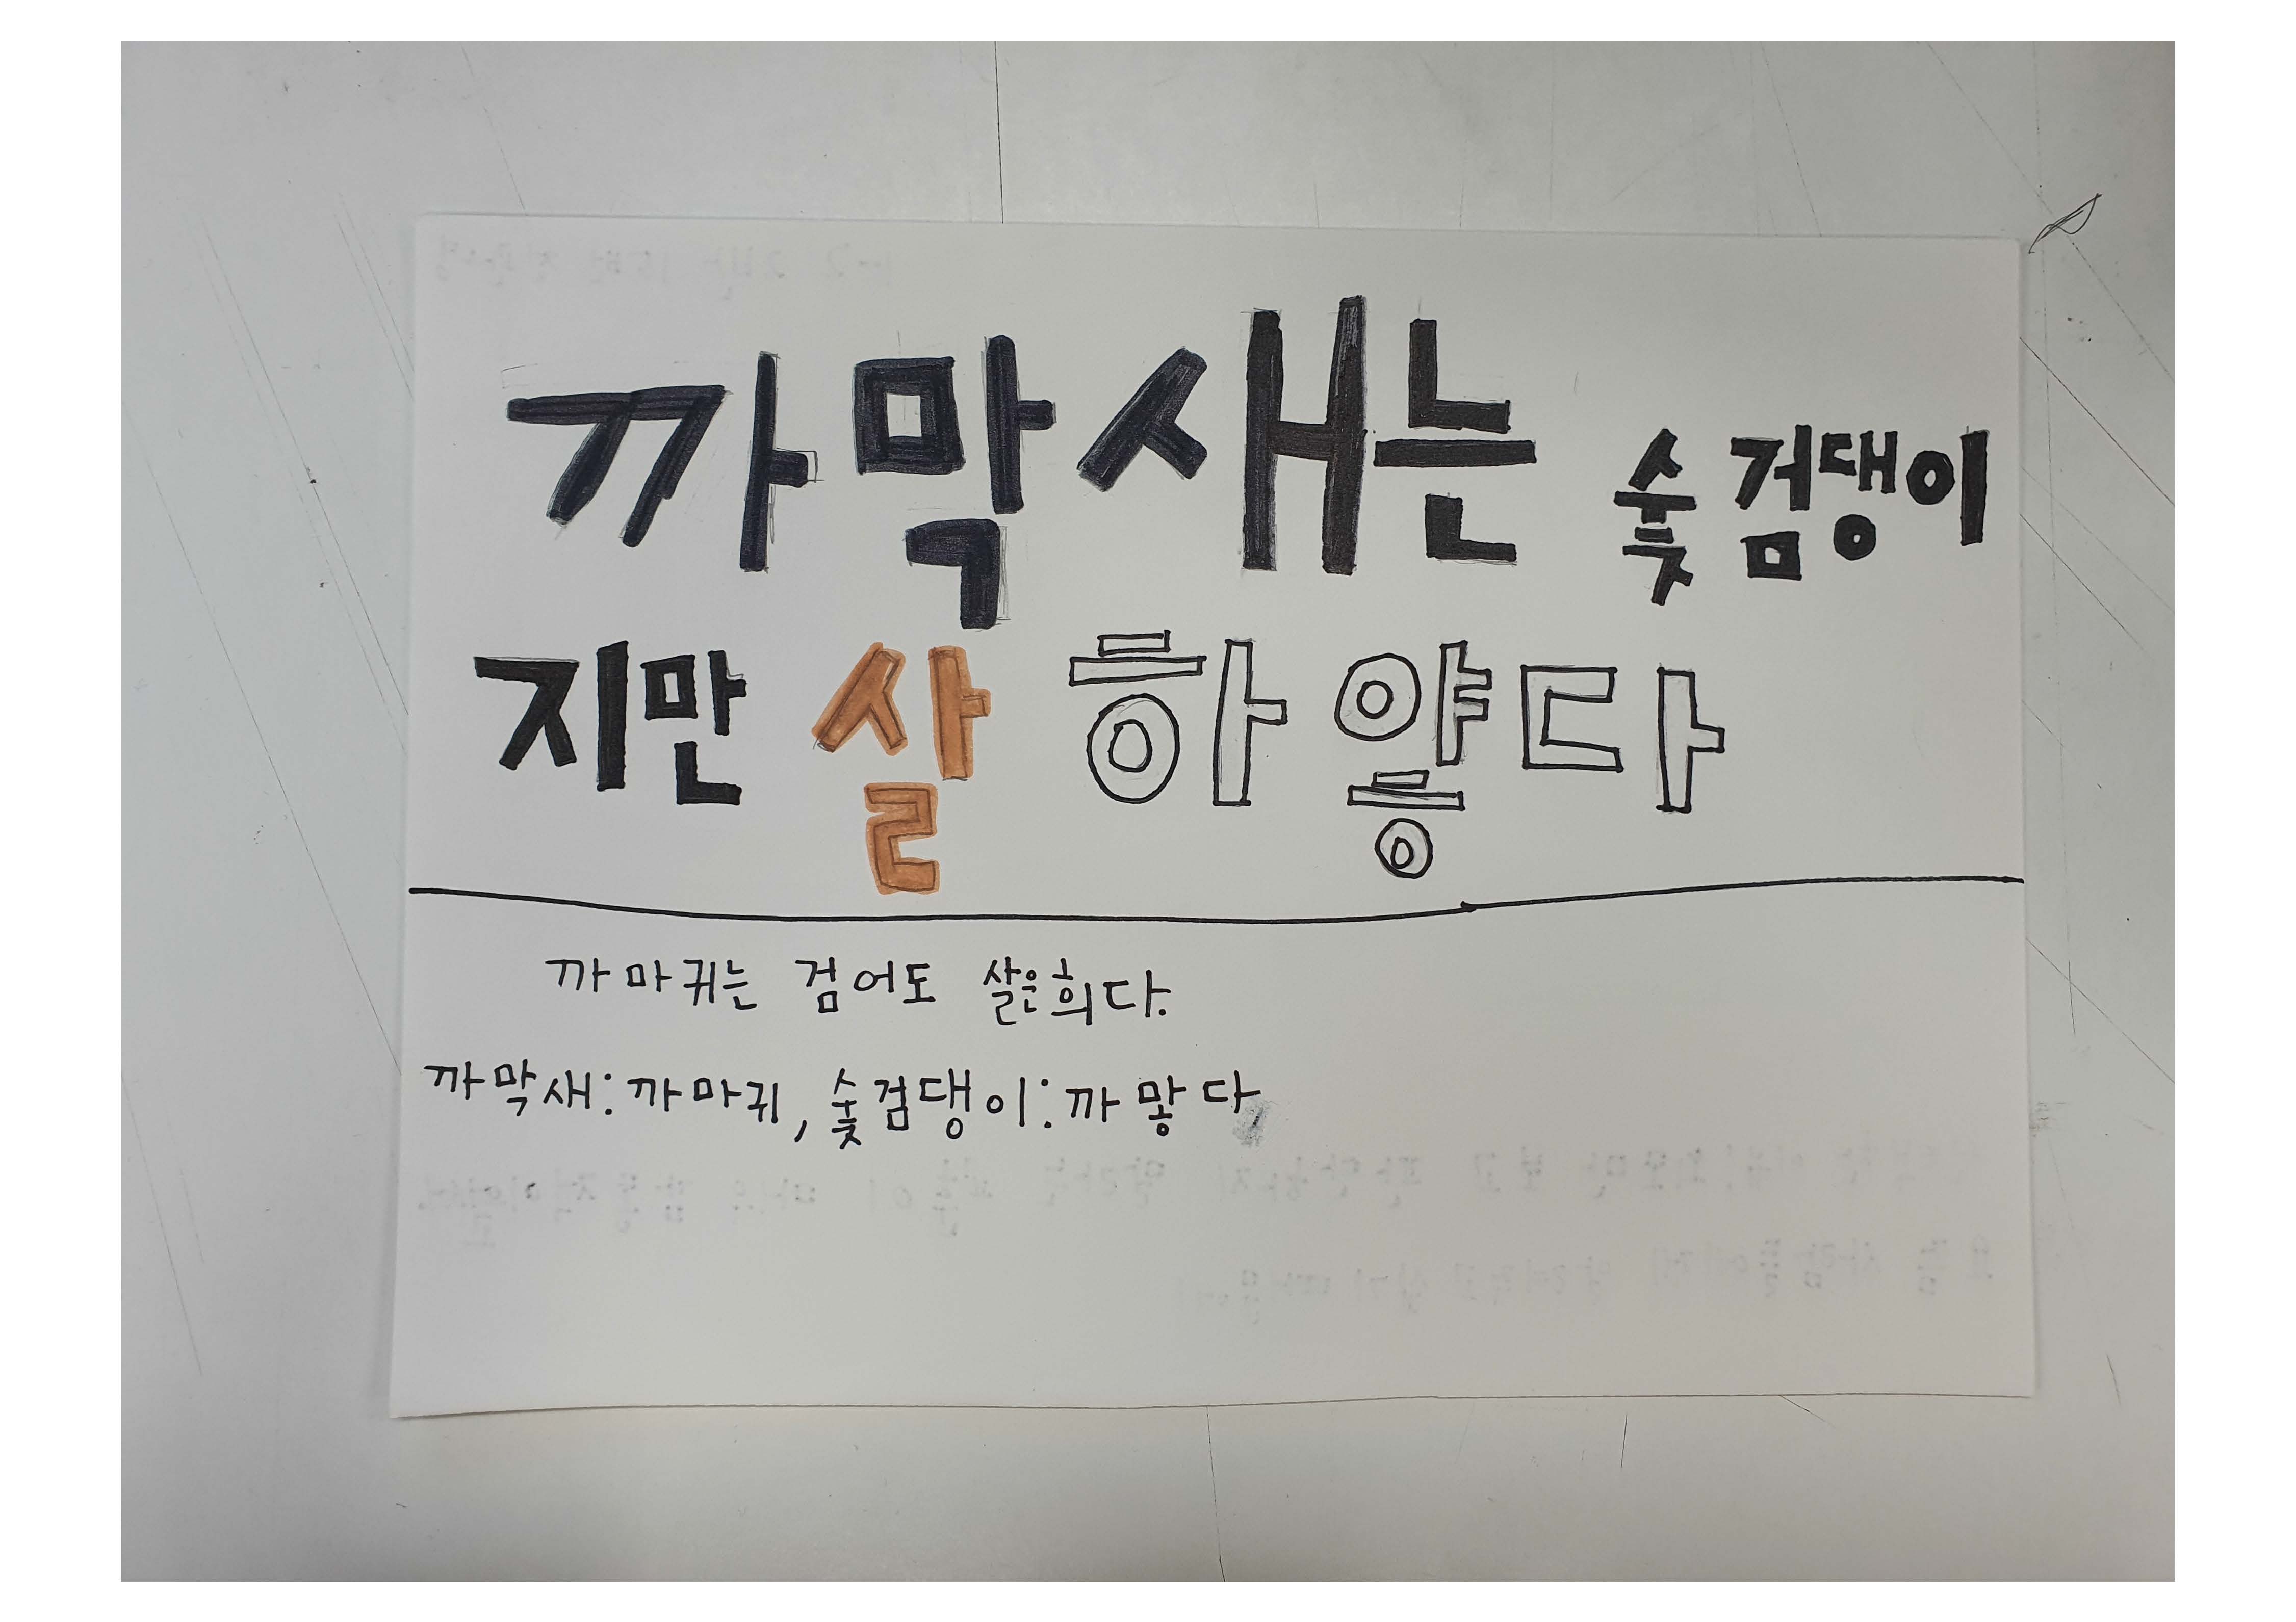 까막새는 숯검댕이
지만 살 하얗다
까마귀는 검어도 살은희다.
까막새:까마귀, 숯검댕이:까맣다